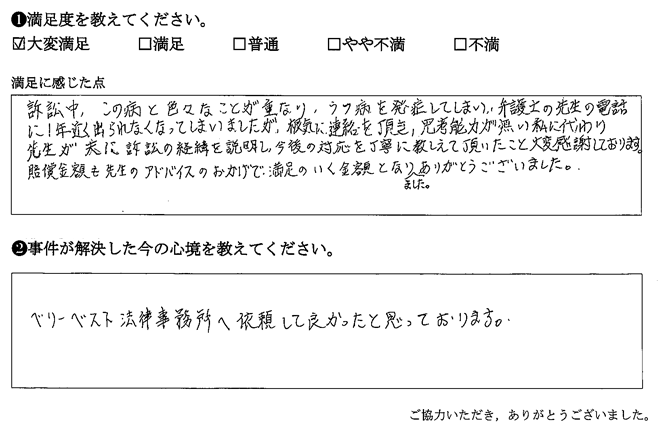 ❶満足度を教えてください。
☑大変満足 □満足 □普通 □やや不満 □不満
満足に感じた点
訴訟中、この病と色々なことが重なり、うつ病を発症してしまい、弁護士の先生の電話
に1年近く出られなくなってしまいましたが、根気に連絡を頂き、思考能力が無い私に代わり
先生が夫に訴訟の経緯を説明し、今後の対応を丁寧に教しえて頂いたこと大変感謝しております。
賠償金額も先生のアドバイスのおかげで満足のいく金額となり、ありがとうございました。
ました。
❷事件が解決した今の心境を教えてください。
ベリーベスト法律事務所へ依頼して良かったと思っております。
ご協力いただき、ありがとうございました。